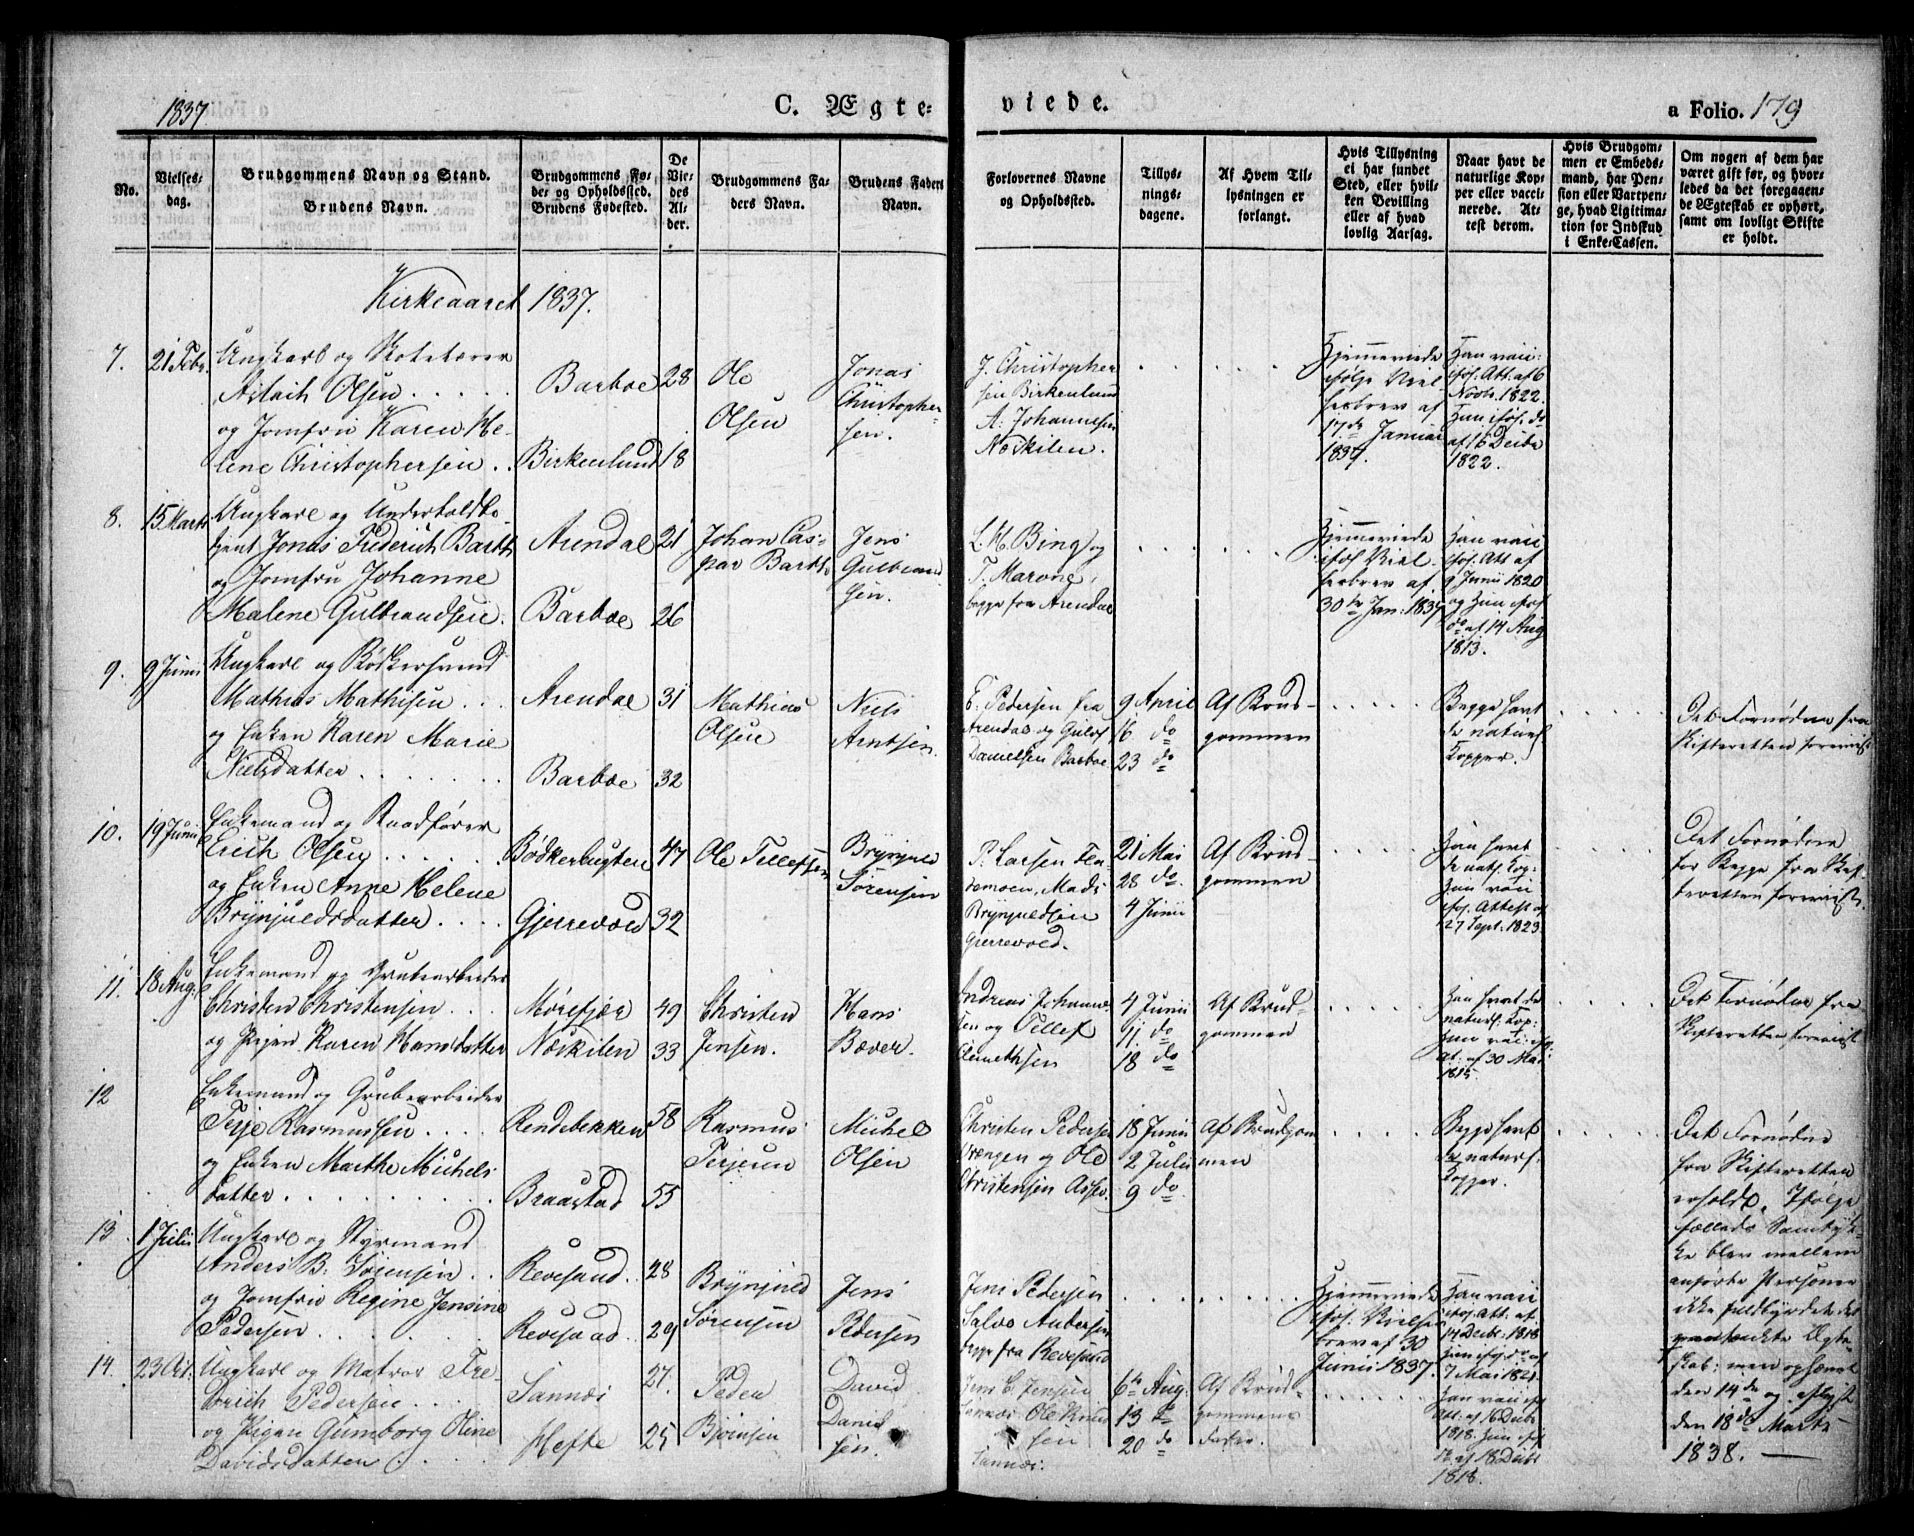 1837
C. Ægte-
viede.
a Folio. 179
No.
Vielses-
dag.
Brudgommens Navn og Stand.
Brudens Navn.
Brudgommens Fø-
de- og Opholdssted.
Brudens Fødested.
De
Vie-
des
Al-
der.
Brudgommens Fa-
ders Navn.
Brudens Faders
Navn.
Forlovernes Navne
og Opholdssted.
Tillys-
nings-
dagene.
Af Hvem Til-
lysningen er
forlangt.
Hvis Tillysning
ei har fundet
Sted, eller hvil-
ken Bevilling
eller af hvad
lovlig Aarsag.
Naar havt de
naturlige Kop-
per eller vacci-
nerede. At-
test derom.
Hvis Brudgom-
men er Embeds-
mand, har Pen-
sion eller Vartpen-
ge, hvad Legitima-
tion for Indskud
i Enke-Cassen.
Om nogen af dem har
været gift før, og hvor-
ledes da det foregaaen-
de Ægteskab er ophørt,
samt om lovligt Skifte
er holdt.
Kirkeaaret 1837.
7.
21 Febr.
Ungkarl og
Aslach Olsen
og Jomfru Karen He-
lene Christophersen
Barboe
Birkenlund
28
18
Ole
Olsen
Jonas
Christopher-
sen.
J. Christopher
sen Birkenlund
A. Johannesen
Næskilen.
Hjemmeviede
ifølge Viel-
sesbrev af
17de Januar
1837.
Han vacc:
ifø. Att. af 6
Novbr. 1822.
Hun ifø. do
af 16 Decbr
1822.
8.
15 Marts
Ungkarl og Underholdbe-
tjent Jonas Frederich Barth
og Jomfru Johanne
Malene Gulbrandsen.
Arendal
Barboe
21
26
Johan Cas-
par Barth
Jens
Gulbrand
sen.
L. H. Bing og
T. Marone,
begge fra Arendal
Hjemmeviede
ifø. Viel-
sesbrev af
30te Jan: 1837
Han vacc
ifø. Att af
9 Junii 1820
og Hun ifø.
do af 14 Aug
1813.
9.
9 Junii
Ungkarl og Bødkersvend
Mathias Mathisen
og Enken Karen Marie
Nielsdatter
Arendal
Barboe
31
32
Mathias
Olsen
Niels
Arntsen.
E. Pedersen fra
Arendal og
Danielsen Barboe
9 April
16 do
23 do
Af Brud-
gommen
Begge havt
de naturl.
Kopper.
Det Fornødne fra
Skifteretten foreviist
10.
19 Junii
Enkemand og
Erich Olsen
og Enken Anne Helene
Brynjuldsdatter
Bødkerbugten
Gjerrevold
47
32
Ole Tellefsen
Brynjuld
Sørensen
P. Larsen Fla-
demoen, Mads
Brynjuldsen
Gjerrevold.
21 Mai
28 do.
4 Junii
Af Brud-
gommen
Han havt
de natl. Kop:
Hun vacc
ifø. Attest af
27 Sept. 1823.
Det Fornødne
for Begge fra Skif-
teretten foreviist.
11.
18 Aug:
Enkemand og Grubearbeider
Christen Christensen
og Pigen Karen Hansdatter
Mørefjær
Næskilen
49
33
Christen
Jensen.
Hans
Bæver.
Andreas Johanne-
sen og Tellef
4 Junii
11. do
18 do
Af Brud-
gommen
Han havt de
naturl. Kop:
Hun vac: ifø.
At: af 30 Mai
1815.
Det Fornødne fra
Skifteretten foreviist
12
Enkemand og Grubearbeider
Terje Rasmussen
og Enken Marthe Michels
datter
Rendebekken
Braastad
58
55
Rasmus
Terjesen
Michel
Olsen
Christen Pedersen
Vrængen og Ole
Christensen
18 Junii
2 Julii
9 do
Af Brudgom
men
Begge havt
de naturl.
Kopper.
Det Fornødne
fra Skifteretten
erholdt. Ifølge
fælleds Samtyk-
ke blev mellem
anførte Personer
ikke fuldbyrdet det
paatænkte Ægte-
skab: men ophævet
den 14de og aflyst
den 18de Marts
1838.
13
1 Julii
Ungkarl og Styrmand
Anders B. Sørensen
og Jomfru Regine Jensine
Pedersen
Revesand
Revesand
28
29
Brynjuld
Sørensen
Jens
Pedersen
Jens Pedersen
Salve Andersen
begge fra Revesand
Hjemmeviede
ifø. Vielses
brev af 30
Junii 1837.
Han vacc
ifø. Att. af
14 Decbr. 1818
Hun ifø. do af
7 Mai 1821
14.
23 Oct.
Ungkarl og Matros Fre-
derich Pedersen
og Pigen Gunborg Oline
Davidsdatter
Sannæs
Hefte
27.
25
Peder
Bjørnsen
David
David
sen.
Jens C. Jensen
Sannæs Ole Knud
sen
Sannæs.
6te Aug:
13 do
20 do
Af Brud-
gommens
Fader.
Han vacc ifø
Att: af 16 Decbr
1818. Hun ifø
do af 18 Decbr
1818.